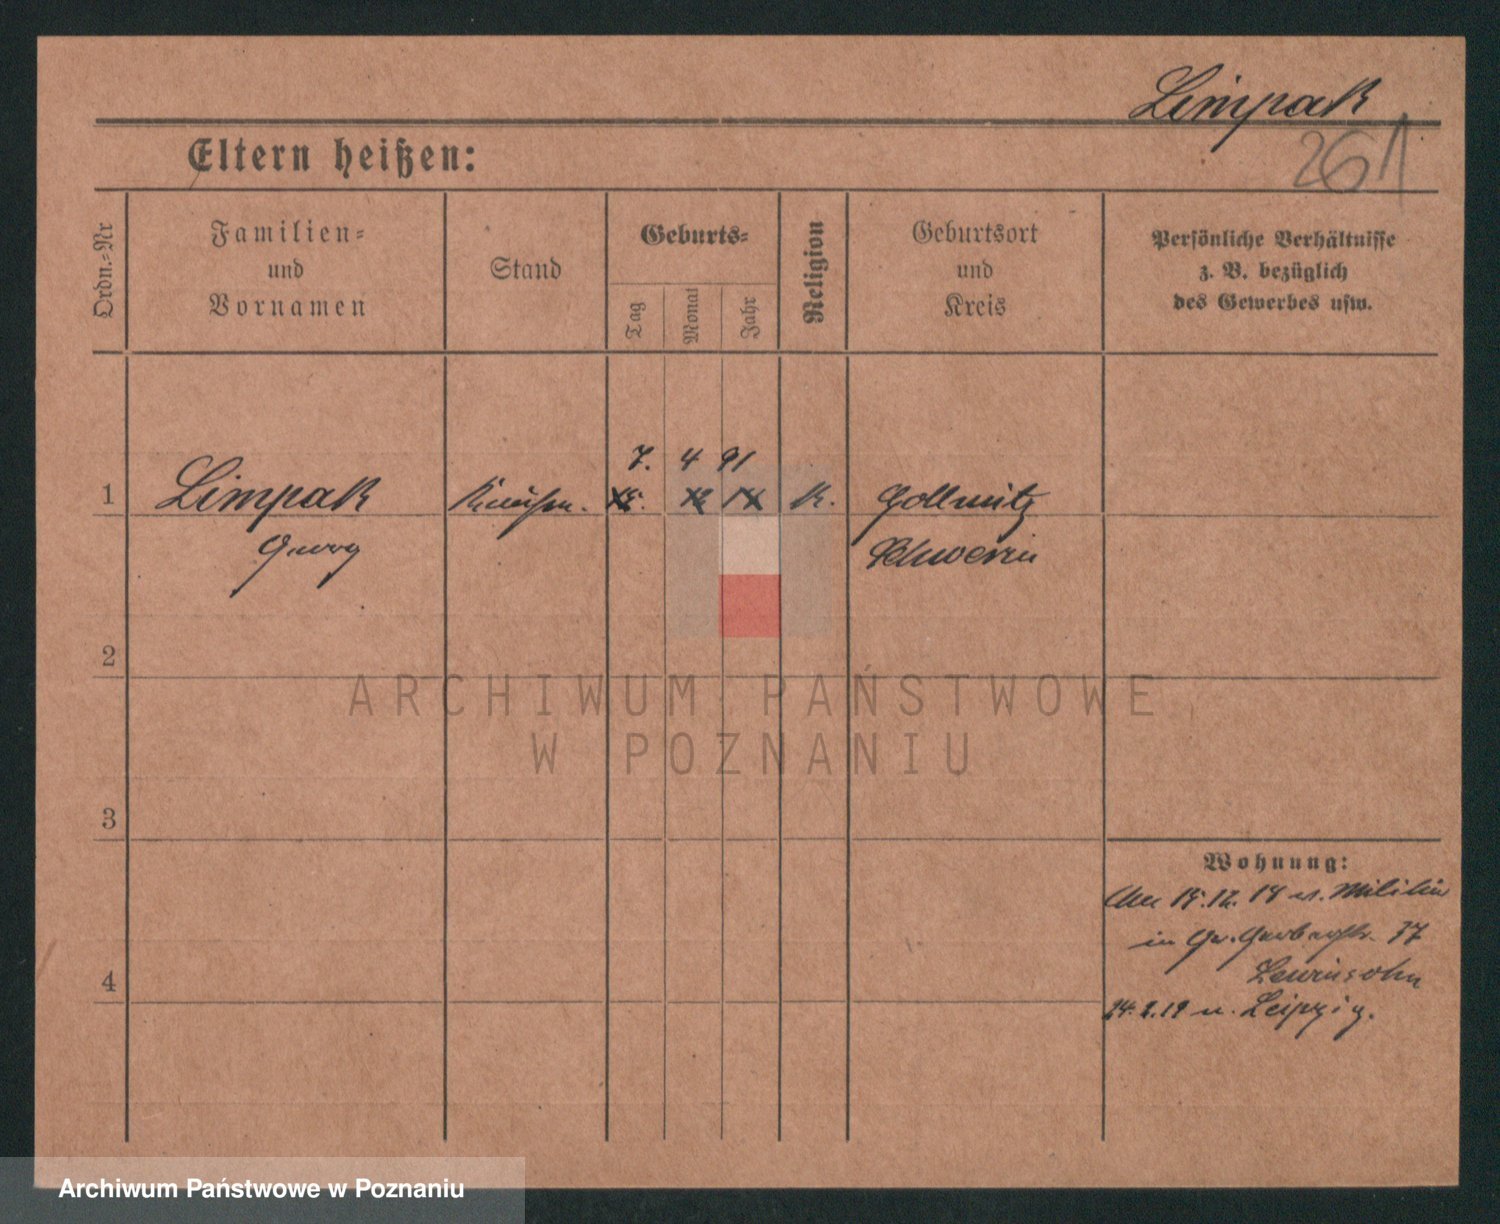 Limpak
261
Eltern heißen:
Ordn.-Nr
Familien-
und
Vornamen
Stand
Geburts-
Tag
Monat
Jahr
Religion
Geburtsort
und
Kreis
Persönliche Verhältnisse
z. B. bezüglich
des Gewerbes usw.
7. 4 91
1 Limpak K. Gollmitz
Georg Schwerin
2
ARCHIWUM PAŃSTWOWE
W POZNANIU
3
Wohnung:
15.12. 18 v. Militär
in Gr. Gerberstr. 37
4
Lewinsohn
24.2.19 n. Leipzig.
Archiwum Państwowe w Poznaniu